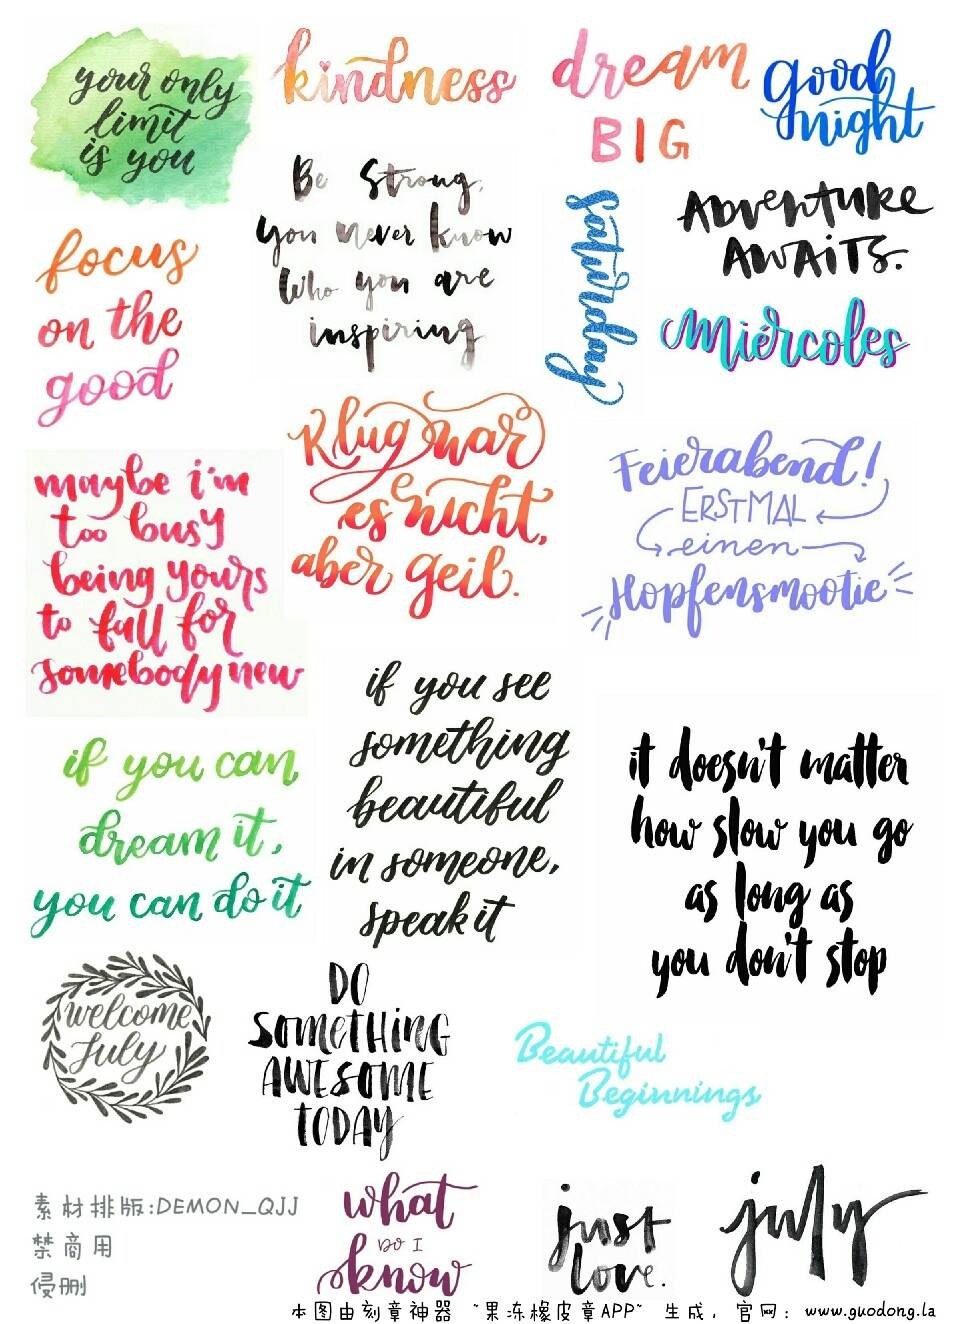 your only
limit
is you
kindness
dream
BIG
good
night
Be Strong,
you never know
who you are
inspiring
saturday
ADVENTURE
AWAITS.
Miércoles
focus
on the
good
Klug war
es nicht,
aber geil.
Feierabend!
ERSTMAL
einen
Hopfensmootie
maybe i'm
too busy
being yours
to fall for
somebody new
if you see
something
beautiful
in someone,
speak it
it doesn't matter
how slow you go
as long as
you don't stop
if you can
dream it,
you can do it
welcome
July
DO
SOMETHING
AWESOME
TODAY
Beautiful
Beginnings
素材排版:DEMON_QJJ
禁商用
侵删
what
DO I
know
just
love.
july
本图由刻章神器 "果冻橡皮章APP" 生成，官网：www.guodong.la